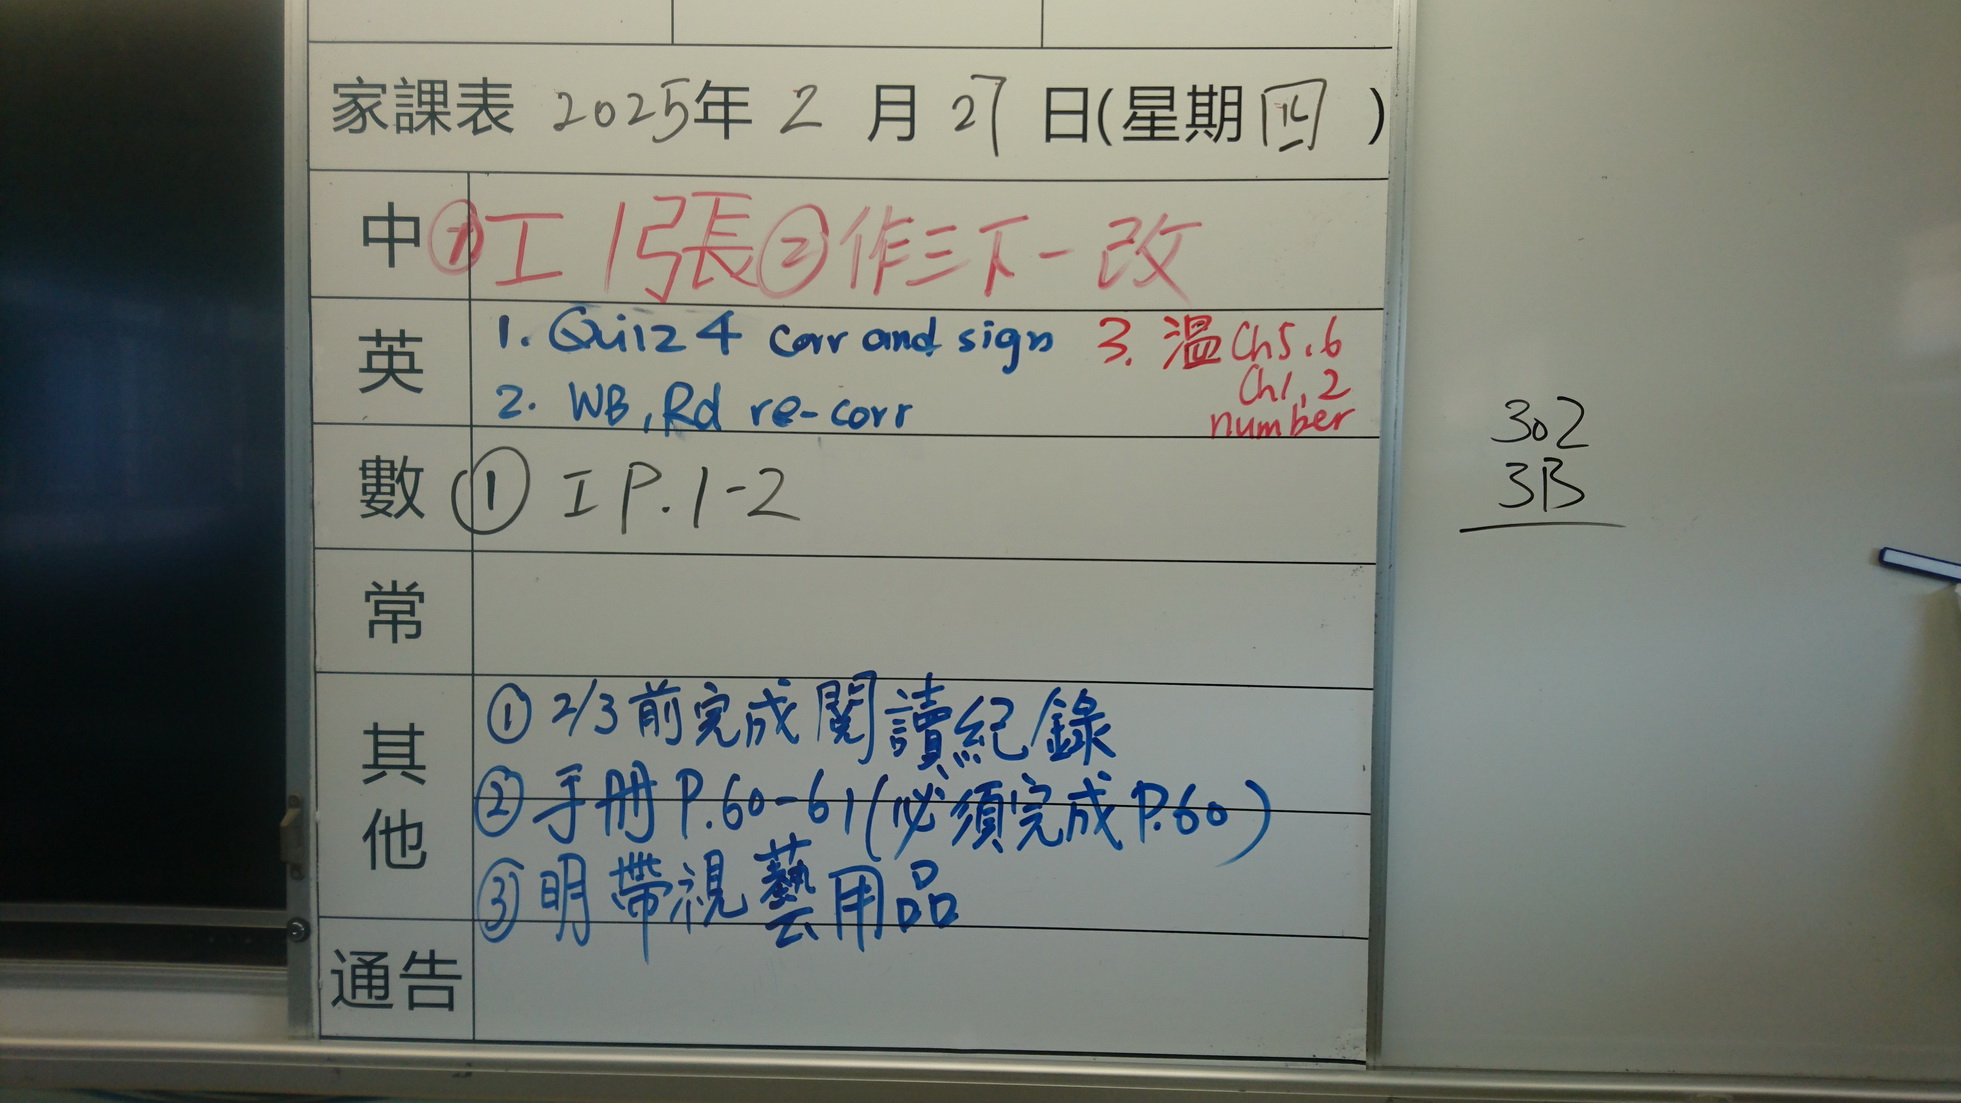 家課表 2025年 2 月 27 日(星期四)
中 ①工1張②作三下一改
英 1. Quiz 4 corr and sign 3. 溫Ch5,6
Ch1,2
2. WB, Rd re-corr number
數 ① 工 P.1-2
常
其他 ① 2/3前完成閱讀紀錄
② 手册 P.60-61(必須完成P.60)
③ 明帶視藝用品
通告
302
3B